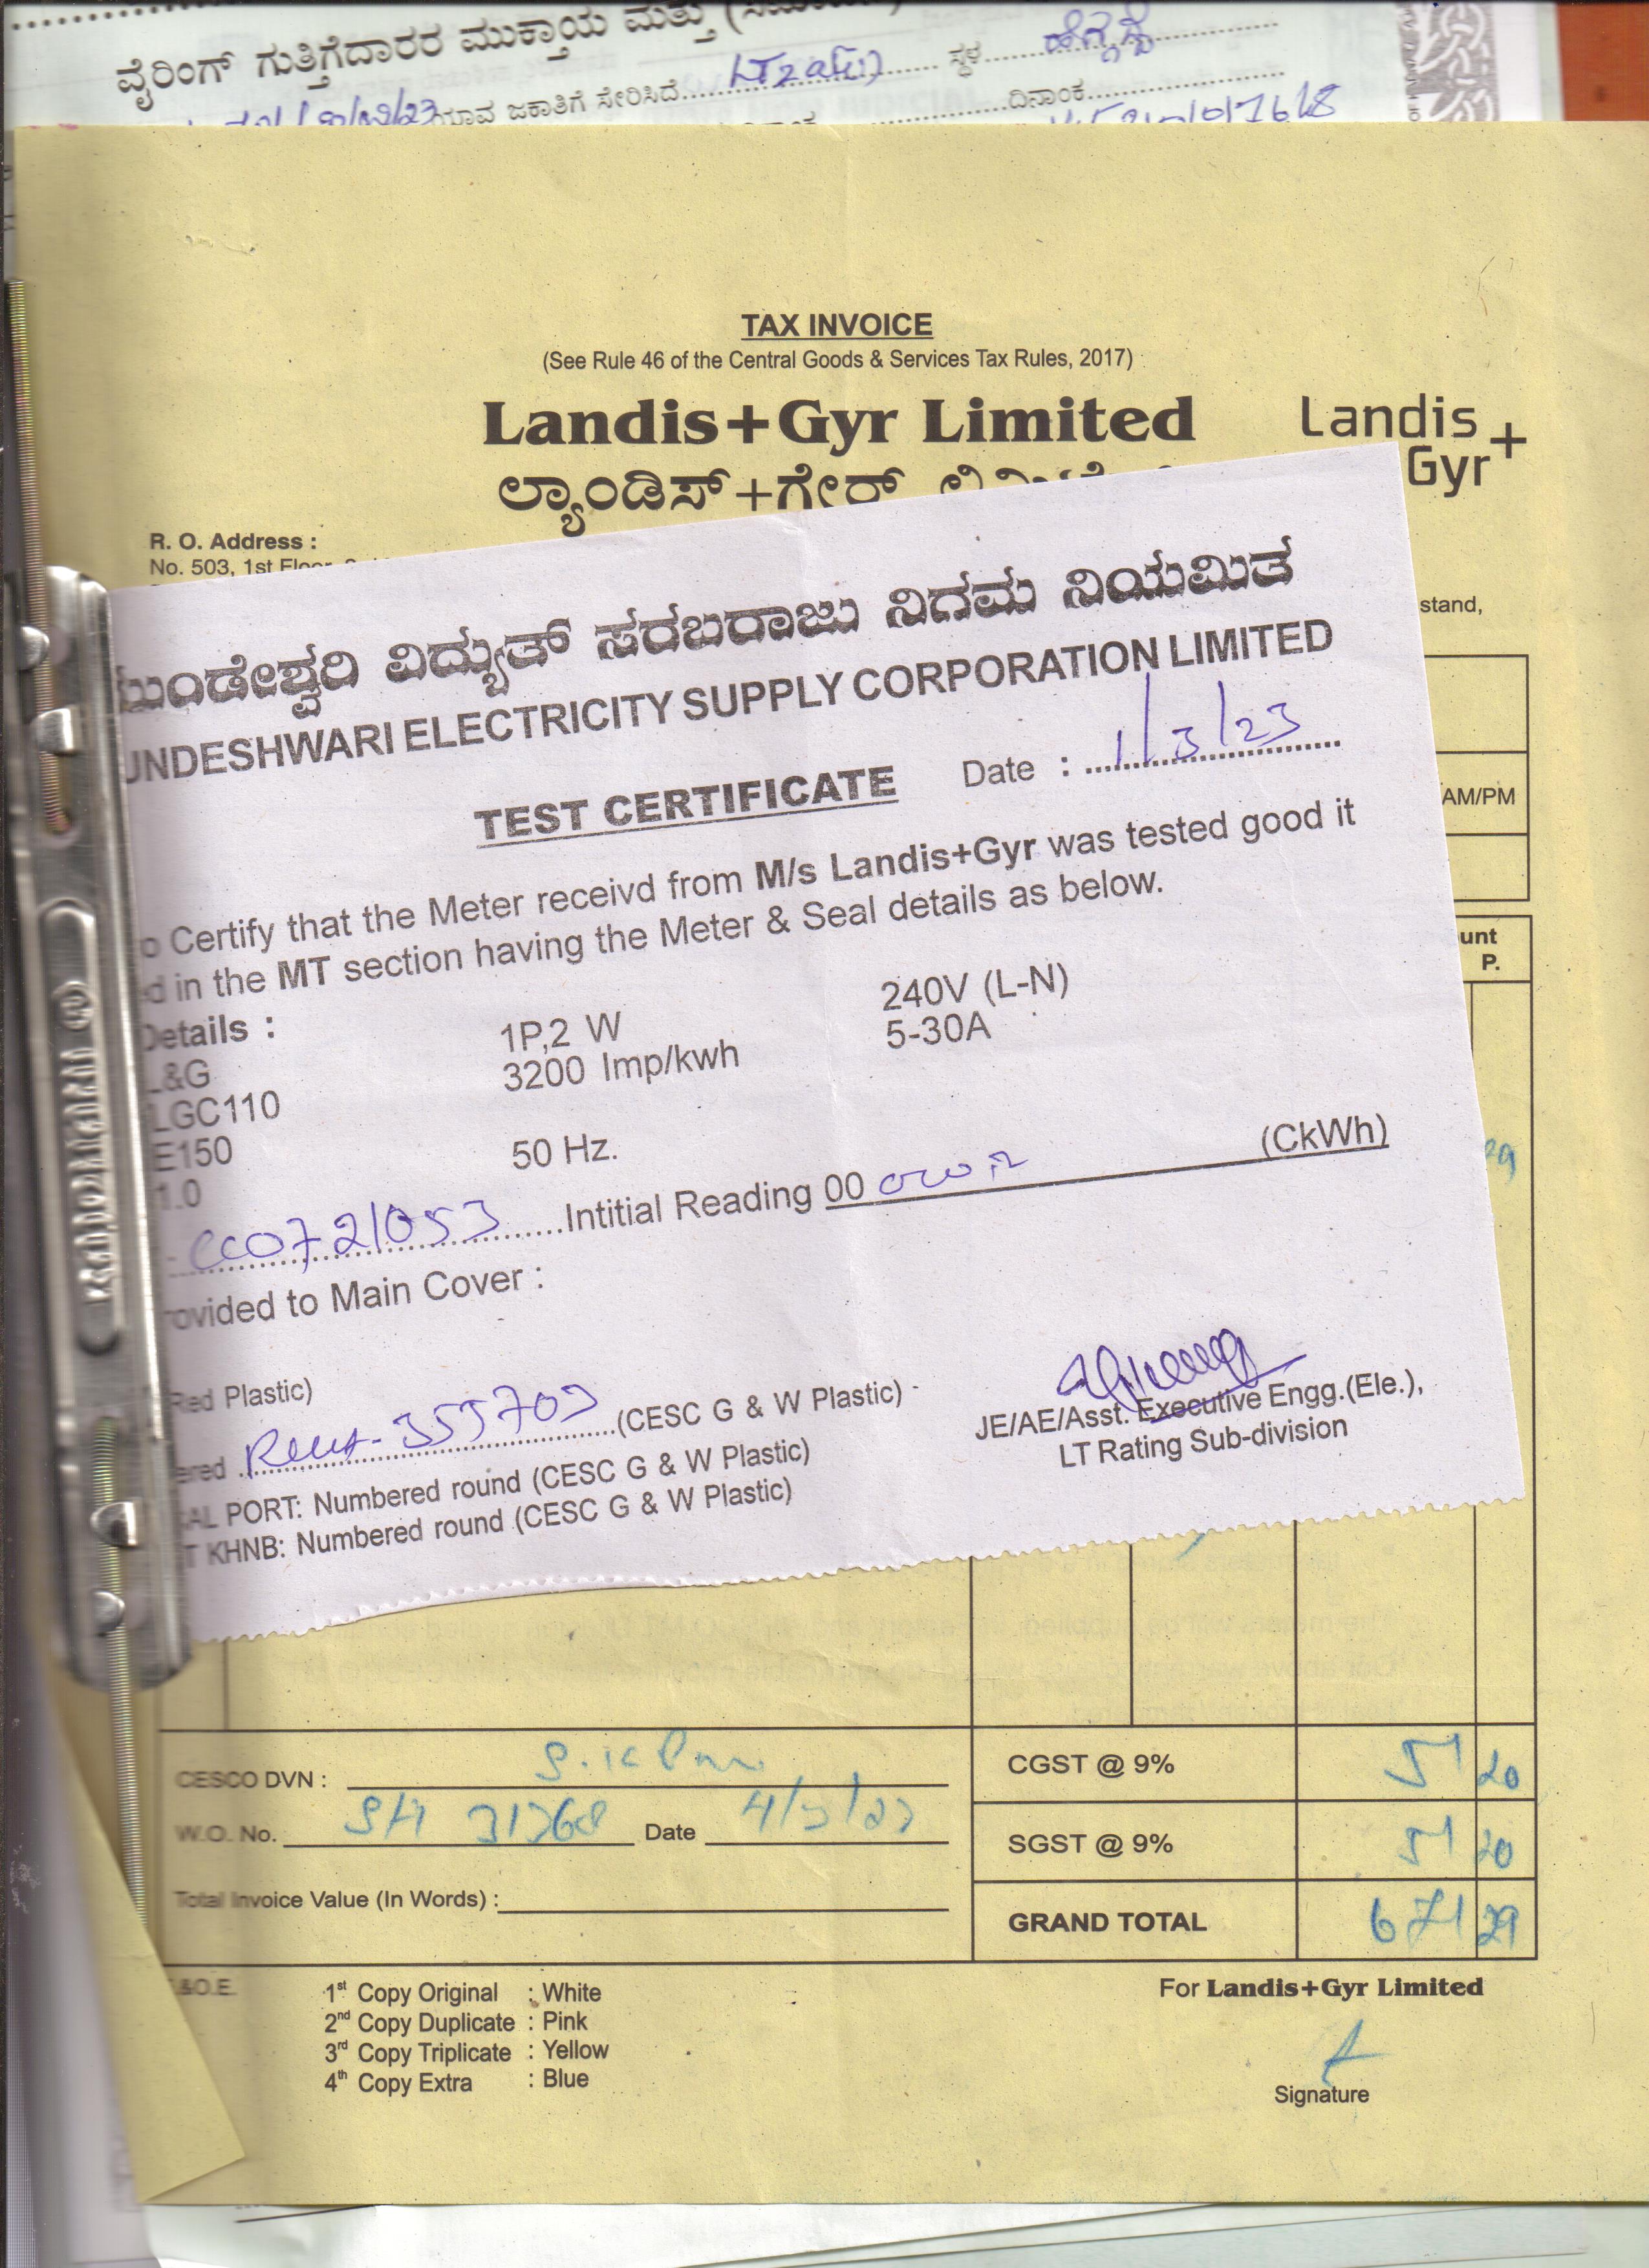 ವೈರಿಂಗ್ ಗುತ್ತಿಗೆದಾರರ ಮುಕ್ತಾಯ ಮತ್ತು
ಜಕಾತಿಗೆ ಸೇರಿಸಿದೆ ಸ್ಥಳ
ದಿನಾಂಕ
TAX INVOICE
(See Rule 46 of the Central Goods & Services Tax Rules, 2017)
Landis+Gyr Limited
Landis Gyr+
ಲ್ಯಾಂಡಿಸ್+ಗೇರ್
R. O. Address :
No. 503, 1st Floor
stand,
AM/PM
unt
P.
29
ಮುಂಡೇಶ್ವರಿ ವಿದ್ಯುತ್ ಸರಬರಾಜು ನಿಗಮ ನಿಯಮಿತ
UNDESHWARI ELECTRICITY SUPPLY CORPORATION LIMITED
Date : 1/3/23
TEST CERTIFICATE
o Certify that the Meter receivd from M/s Landis+Gyr was tested good it
d in the MT section having the Meter & Seal details as below.
Details :
L&G 1P,2 W 240V (L-N)
LGC110 3200 Imp/kwh 5-30A
E150
1.0 50 Hz.
CC0721053 Intitial Reading 00 (CkWh)
rovided to Main Cover :
Red Plastic)
ered 355709 (CESC G & W Plastic)
AL PORT: Numbered round (CESC G & W Plastic)
T KHNB: Numbered round (CESC G & W Plastic)
JE/AE/Asst. Executive Engg.(Ele.),
LT Rating Sub-division
CESCO DVN :
W.O. No. Date
Total Invoice Value (In Words) :
CGST @ 9% 51 20
SGST @ 9% 51 20
GRAND TOTAL 671 29
&O.E.
1st Copy Original : White
2nd Copy Duplicate : Pink
3rd Copy Triplicate : Yellow
4th Copy Extra : Blue
For Landis+Gyr Limited
Signature